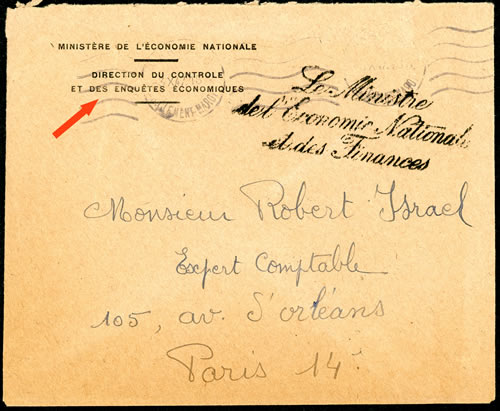 MINISTÈRE DE L'ÉCONOMIE NATIONALE
DIRECTION DU CONTROLE
ET DES ENQUÊTES ÉCONOMIQUES
Le Ministre
de l'Économie Nationale
et des Finances
Monsieur Robert Israel
Expert Comptable
105, av. d'orléans
Paris 14